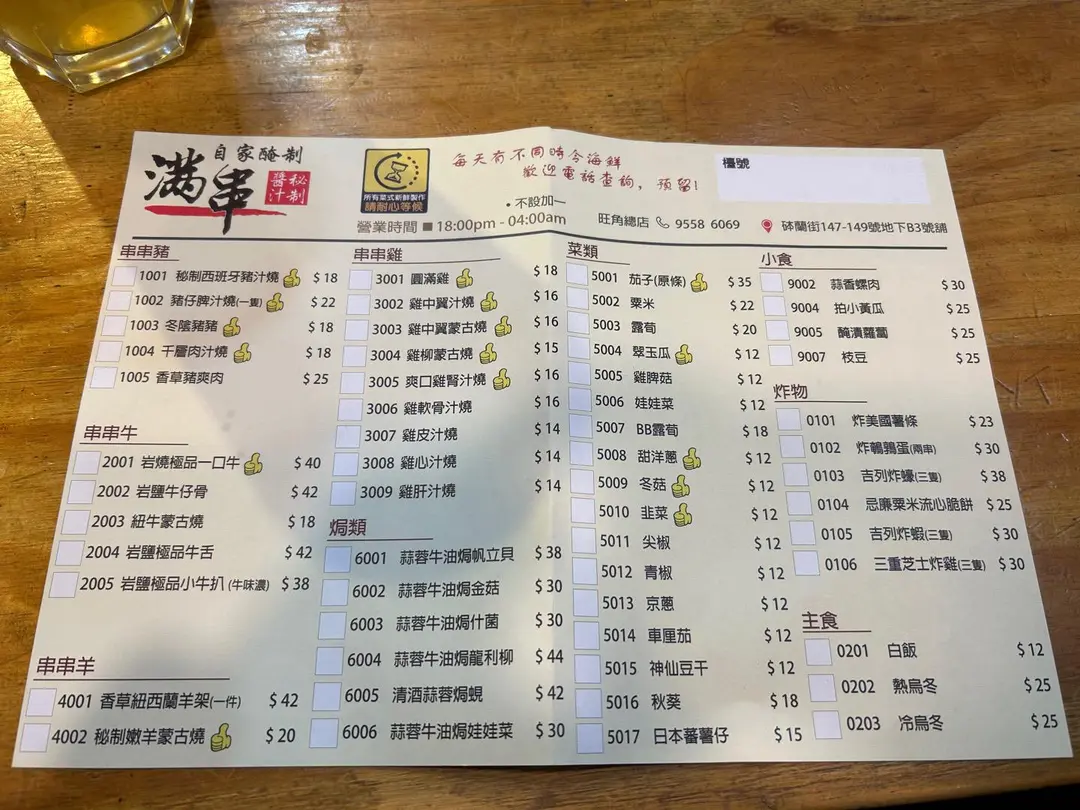 滿串
自家醃制
秘制
醬汁
所有菜式新鮮製作
請耐心等候
每天有不同時令海鮮
歡迎電話查詢，預留!
• 不設加一
營業時間 ■ 18:00pm - 04:00am
旺角總店 9558 6069
砵蘭街147-149號地下B3號舖
檯號
串串豬
1001 秘制西班牙豬汁燒 $ 18
1002 豬仔脾汁燒(一隻) $ 22
1003 冬陰豬豬 $ 18
1004 千層肉汁燒 $ 18
1005 香草豬爽肉 $ 25
串串牛
2001 岩燒極品一口牛 $ 40
2002 岩鹽牛仔骨 $ 42
2003 紐牛蒙古燒 $ 18
2004 岩鹽極品牛舌 $ 42
2005 岩鹽極品小牛扒 (牛味濃) $ 38
串串羊
4001 香草紐西蘭羊架(一件) $ 42
4002 秘制嫩羊蒙古燒 $ 20
串串雞
3001 圓滿雞 $ 18
3002 雞中翼汁燒 $ 16
3003 雞中翼蒙古燒 $ 16
3004 雞柳蒙古燒 $ 15
3005 爽口雞腎汁燒 $ 16
3006 雞軟骨汁燒 $ 16
3007 雞皮汁燒 $ 14
3008 雞心汁燒 $ 14
3009 雞肝汁燒 $ 14
焗類
6001 蒜蓉牛油焗帆立貝 $ 38
6002 蒜蓉牛油焗金菇 $ 30
6003 蒜蓉牛油焗什菌 $ 30
6004 蒜蓉牛油焗龍利柳 $ 44
6005 清酒蒜蓉焗蜆 $ 42
6006 蒜蓉牛油焗娃娃菜 $ 30
菜類
5001 茄子(原條) $ 35
5002 粟米 $ 22
5003 露荀 $ 20
5004 翠玉瓜 $ 12
5005 雞脾菇 $ 12
5006 娃娃菜 $ 12
5007 BB露荀 $ 18
5008 甜洋蔥 $ 12
5009 冬菇 $ 12
5010 韭菜 $ 12
5011 尖椒 $ 12
5012 青椒 $ 12
5013 京蔥 $ 12
5014 車厘茄 $ 12
5015 神仙豆干 $ 12
5016 秋葵 $ 18
5017 日本蕃薯仔 $ 15
小食
9002 蒜香螺肉 $ 30
9004 拍小黃瓜 $ 25
9005 醃漬蘿蔔 $ 25
9007 枝豆 $ 25
炸物
0101 炸美國薯條 $ 23
0102 炸鵪鶉蛋(兩串) $ 30
0103 吉列炸蠔(三隻) $ 38
0104 忌廉粟米流心脆餅 $ 25
0105 吉列炸蝦(三隻) $ 30
0106 三重芝士炸雞(三隻) $ 30
主食
0201 白飯 $ 12
0202 熱烏冬 $ 25
0203 冷烏冬 $ 25